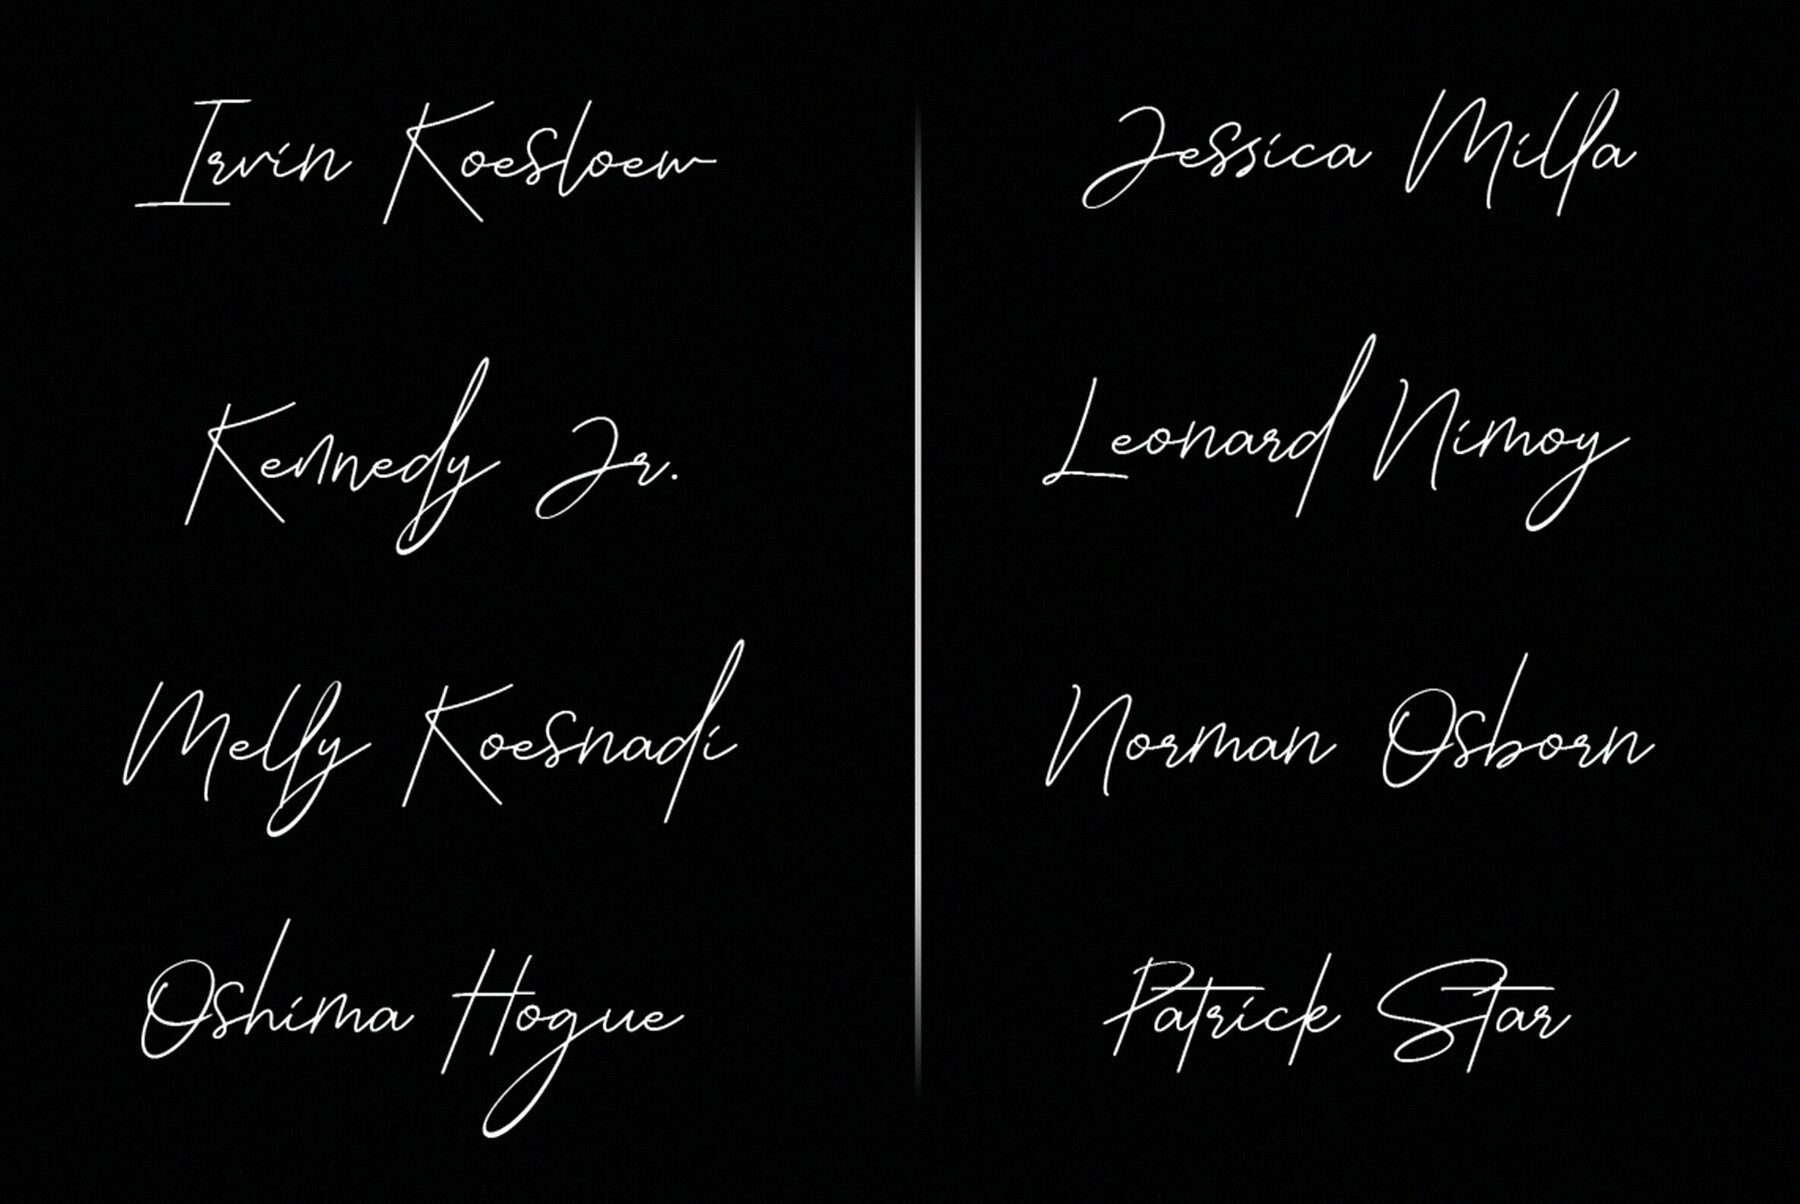 Irvin Koesloew
Kennedy Jr.
Melly Koesnadi
Oshima Hogue
Jessica Milla
Leonard Nimoy
Norman Osborn
Patrick Star